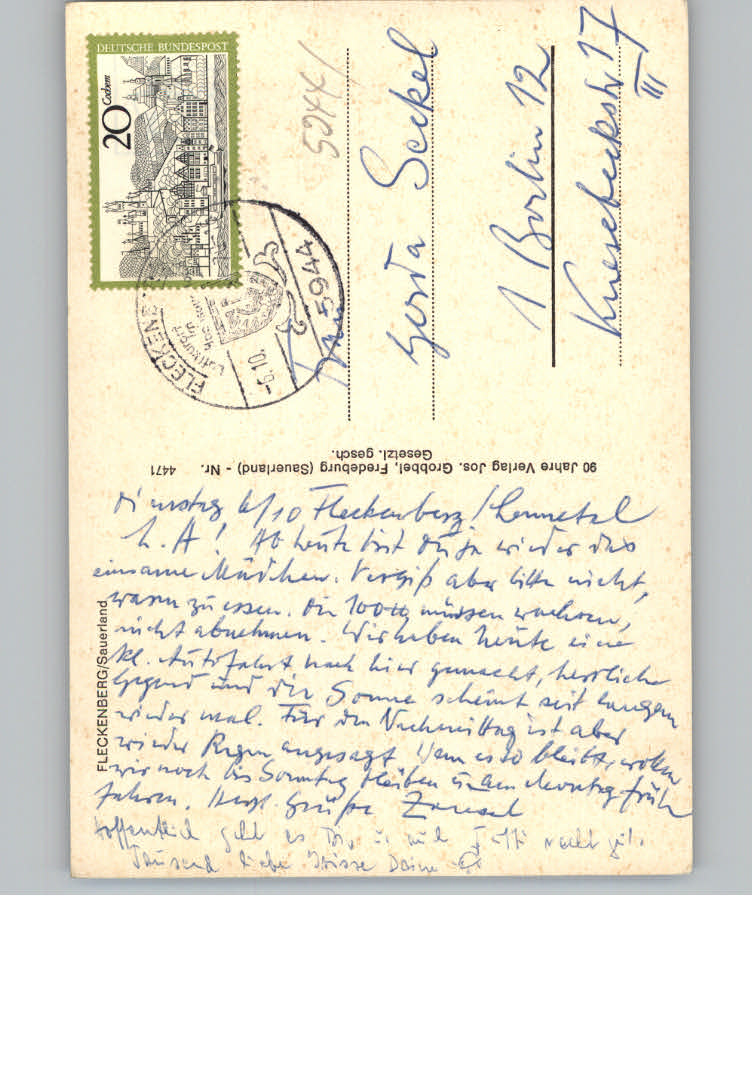 DEUTSCHE BUNDESPOST
20 Cochem
FLECKENB
Luftkurort
5944
-6.10.
52441
Frau
Gerda Seckel
1 Berlin 12
Knesebeckstr 17
III
90 Jahre Verlag Jos. Grobbel, Fredeburg (Sauerland) - Nr. 4471
Gesetzl. gesch.
FLECKENBERG/Sauerland
Dienstag 6/10 Fleckenberg/Lennetal
L. A! Ab heute bist du ja wieder das
einsame Mädchen. Vergiß aber bitte nicht,
warm zu essen. Die 100 müssen wachsen,
nicht abnehmen. Wir haben heute eine
kl. Autofahrt nach hier gemacht, herrliche
Gegend und die Sonne scheint seit langem
wieder mal. Für den Nachmittag ist aber
wieder Regen angesagt. Wenn es so bleibt, wollen
wir noch bis Sonntag bleiben u. am Montag früh
fahren. Herzl. Grüße
Hoffentlich geht es Dir u. auch recht gut.
Tausend liebe Grüsse Deine